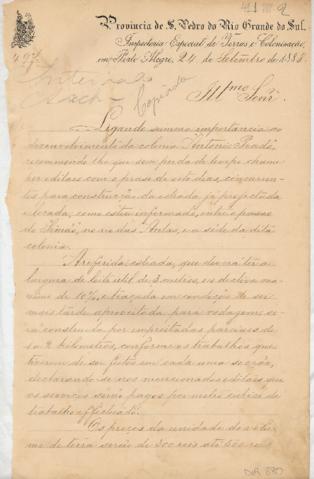 Provincia de S. Pedro do Rio Grande do Sul.
Inspectoria Especial de Terras e Colonisação,
em Porto Alegre, 24 de Setembro de 1888
Inteirado
Copiado
Illmo Senr.
Ligando summa importancia ao
desenvolvimento da colonia Antonio Prado,
recommendo lhe que sem perda de tempo chame
por editaes com o praso de oito dias, concurrentes
para construcção da estrada, já projectada
e locada, como estou informado, entre o passo
do Simão, no rio das Antas, e a séde da dita
colonia.
A referida estrada, que deverá ter a
largura de leito util de 3 metros, e o declive ma-
ximo de 10%, e traçada em condições de ser
mais tarde aproveitada para rodagem se-
rá construida por empreitadas parciaes de
1 a 2 kilometros, conforme os trabalhos que
tiverem de ser feitos em cada uma secção,
declarando-se nos mencionados editaes, que
os serviços serão pagos por metro cubico de
trabalho effectuado.
Os preços da unidade de volu-
me de terra serão de 300 reis até 500 reis